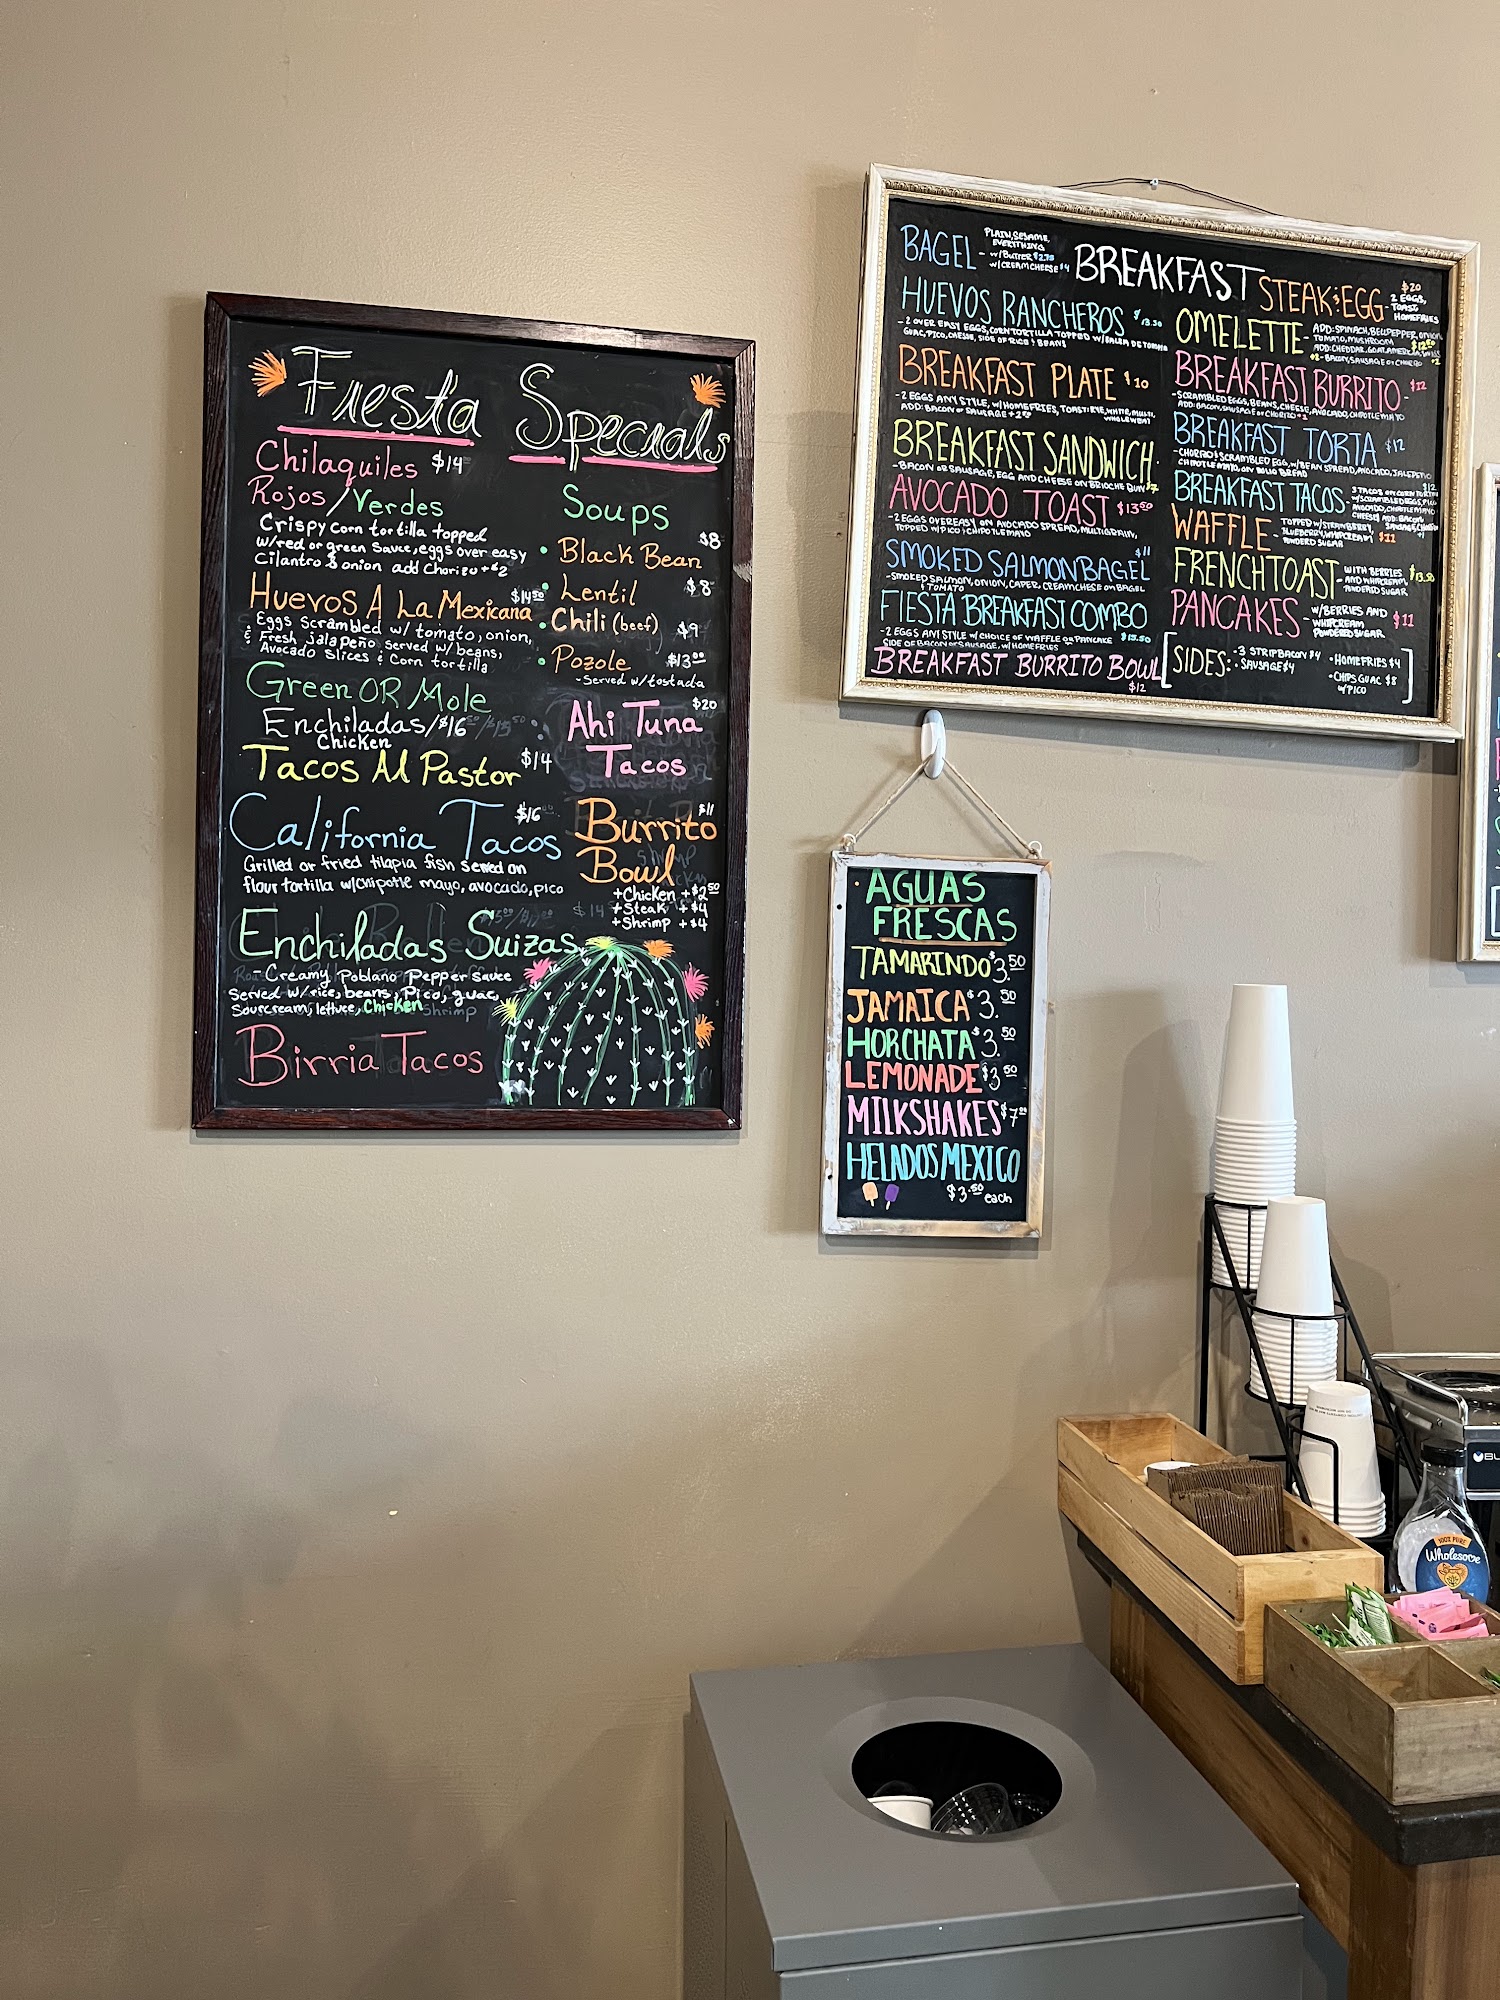 Fiesta Specials
Chilaquiles $14
Rojos/Verdes
Crispy corn tortilla topped
w/red or green sauce, eggs over easy
Cilantro & onion add Chorizo +$2
Huevos A La Mexicana $14⁵⁰
Eggs scrambled w/ tomato, onion,
& Fresh jalapeño served w/beans,
Avocado slices & Corn tortilla
Green OR Mole
Enchiladas/$16
Chicken
Tacos Al Pastor $14
California Tacos $16
Grilled or fried tilapia fish served on
flour tortilla w/chipotle mayo, avocado, pico
Enchiladas Suizas
- Creamy Poblano Pepper sauce
Served w/rice, beans, Pico, guac,
Sourcream, lettuce, Chicken
Birria Tacos
Soups
• Black Bean $8
• Lentil $8
• Chili (beef) $9
• Pozole $13⁰⁰
- Served w/tostada
Ahi Tuna $20
Tacos
Burrito $11
Bowl
+Chicken +$2⁵⁰
+Steak +$4
+Shrimp +$4
BREAKFAST
BAGEL - PLAIN, SESAME,
EVERYTHING
w/BUTTER $2.75
w/CREAMCHEESE $4
HUEVOS RANCHEROS $13.50
- 2 OVER EASY EGGS, CORN TORTILLA TOPPED W/SALSA DE TOMATE
GUAC, PICO, CHEESE, SIDE OF RICE & BEANS
BREAKFAST PLATE $10
- 2 EGGS ANY STYLE, W/HOMEFRIES, TOAST: RYE, WHITE, MULTI,
WHOLEWEAT
ADD: BACON OR SAUSAGE
BREAKFAST SANDWICH
- BACON OR SAUSAGE, EGG AND CHEESE ON BRIOCHE BUN $7
AVOCADO TOAST $13⁵⁰
- 2 EGGS OVEREASY ON AVOCADO SPREAD, MULTIGRAIN,
TOPPED W/PICO & CHIPOTLEMATO
SMOKED SALMON BAGEL $11
- SMOKED SALMON, ONION, CAPER, CREAMCHEESE ON BAGEL
& TOMATO
FIESTA BREAKFAST COMBO
- 2 EGGS ANY STYLE W/CHOICE OF WAFFLE OR PANCAKE $13.50
SIDE OF BACON OR SAUSAGE, W/HOMEFRIES
BREAKFAST BURRITO BOWL
$12
STEAK & EGG - $20
2 EGGS,
TOAST,
HOMEFRIES
OMELETTE - ADD: SPINACH, BELLPEPPER, ONION
TOMATO, MUSHROOM $12⁵⁰
ADD: CHEDDAR, GOAT, AMERICAN, SWISS
BACON, SAUSAGE OR CHORIZO
BREAKFAST BURRITO - $12
- SCRAMBLED EGGS, BEANS, CHEESE, AVOCADO, CHIPOTLE MATO
ADD: BACON, SAUSAGE OR CHORIZO
BREAKFAST TORTA $12
- CHORIZO & SCRAMBLED EGG, W/BEAN SPREAD, AVOCADO, JALEPEÑO
CHIPOTLE MATO, ON BOLIO BREAD
BREAKFAST TACOS - $12
3 TACOS ON CORN TORTILLA
W/SCRAMBLED EGGS, PICO
AVOCADO, CHIPOTLE MAYO
CHEESE ADD: BACON
SAUSAGE, CHORIZO
WAFFLE - TOPPED W/STRAWBERRY,
BLUEBERRY, WHIPCREAM $11
POWDERED SUGAR
FRENCH TOAST - WITH BERRIES
AND WHIPCREAM, $13.50
POWDERED SUGAR
PANCAKES - W/BERRIES AND
WHIPCREAM $11
POWDERED SUGAR
SIDES: - 3 STRIP BACON $4
- SAUSAGE $4
• HOMEFRIES $4
• CHIPS GUAC $8
W/PICO
AGUAS
FRESCAS
TAMARINDO $3.50
JAMAICA $3.50
HORCHATA $3.50
LEMONADE $3.50
MILKSHAKES $7
HELADOS MEXICO
$3.50 each
100% PURE
Wholesome